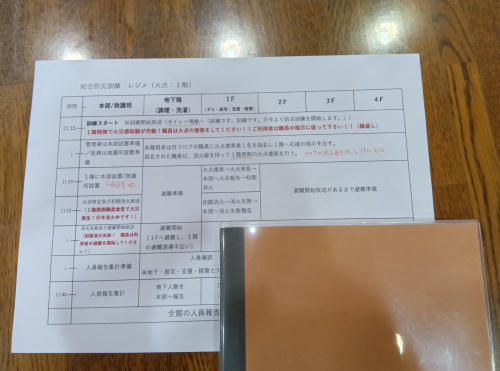 総合防災訓練 レジメ(火点:1階)
時間 本部/救護班 地下階 1F 2F 3F 4F
(調理・洗濯) (デイ・居宅・支援・管理)
11:15 訓練スタート ※訓練開始放送(サイレン鳴動~「訓練です。訓練です。只今より防災訓練を開始します。」)
1階西側で火災感知器が作動!職員は火点の捜索をしてください!!ご利用者は職員の指示に従って下さい!!(繰返し)
↓ 管理者は本部設置準備
/医務は救護所設置準備
各階班長は自フロアの職員に火点捜索員1名を指名し1階へ応援の指示を出す。
指名された職員は、消火器を持って1階西側の火点捜索を行う。
11:20 1階に本部設置/救護
所設置
避難準備
火点捜索→火点発見→
本部へ火点報告→初期
消火
避難開始放送があるまで避難準備
火点特定及び初期消火放送
(1階西側職員食堂で火災
発生!只今消火中です!)
初期消火→消火失敗→
本部へ消火失敗報告
↓ 消火失敗及び避難開始放送
(初期消火失敗! 職員は利
用者の避難を開始してくださ
い!)
避難開始
(1Fへ避難し、1階
の避難誘導手伝い)
↓ 人員報告集計準備
人員確認
※地下・居宅・支援・経管と
11:40 人員報告集計
地下人数を
本部へ報告
全館の人員報告